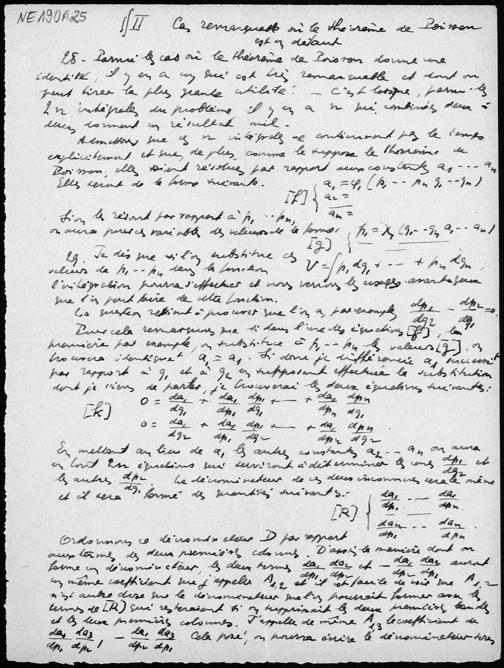 NE190A25
∬ II Cas remarquable où le théorème de Poisson
est en défaut
28. - Parmi les cas où le théorème de Poisson donne une
identité, il y en a un qui est très remarquable et dont on
peut tirer la plus grande utilité. - C'est lorsque, parmi les
2n intégrales du problème il y en a n qui combinées deux à
deux donnent un résultat nul. -
Admettons que ces n intégrales ne contiennent pas le temps
explicitement et que, de plus, comme le suppose le théorème de
Poisson, elles soient résolues par rapport aux constantes a₁ --- aₙ
Elles seront de la forme suivante.
[f] { a₁ = φ₁ (p₁ --- pₙ q₁ -- qₙ)
a₂ =
aₙ =
Si on les résout par rapport à p₁ -- pₙ,
on aura pour ces variables des valeurs de la forme:
[g] { p₁ = χ₁ (q₁ -- qₙ a₁ -- aₙ)
29. Je dis que si l'on substitue ces
valeurs de p₁ -- pₙ dans la fonction
V = ∫ p₁ dq₁ + --- + pₙ dqₙ,
l'intégration pourra s'effectuer et nous verrons les usages avantageux
que l'on peut faire de cette fonction.
La question revient à prouver que l'on a par exemple dp₁/dq₂ - dp₂/dq₁ = 0.
Pour cela remarquons que si dans l'une des équations [f], la
première par exemple, on substitue à p₁ -- pₙ les valeurs [g], on
trouvera identiquet a₁ = a₁. Si donc je différencie a₁ successivt
par rapport à q₁ et à q₂ en supposant effectuée la substitution
dont je viens de parler, je trouverai les deux équations suivantes:
[k] 0 = da₁/dq₁ + da₁/dp₁ dp₁/dq₁ + --- + da₁/dpₙ dpₙ/dq₁
0 = da₁/dq₂ + da₁/dp₁ dp₁/dq₂ + --- + da₁/dpₙ dpₙ/dq₂
En mettant au lieu de a₁ les autres constantes a₂ --- aₙ on aura
en tout 2n équations qui serviront à déterminer les unes dp₁/dq₂ et
les autres dp₂/dq₁. Le dénominateur de ces deux inconnues sera le même
et il sera formé des quantités suivantes:
[R] { da₁/dp₁ --- da₁/dpₙ
daₙ/dp₁ --- daₙ/dpₙ
Ordonnons ce dénominateur D par rapport
aux termes des deux premières colonnes. D'après la manière dont on
forme un dénominateur, les deux termes da₁/dp₁ da₂/dp₂ et - da₁/dp₂ da₂/dp₁ auront
un même coefficient que j'appelle A₁,₂ et il est facile de voir que A₁,₂
n'est autre chose que le dénominateur qu'on pourrait former avec les
termes de [R] qui resteraient si on supprimait les deux premières bandes
et les deux premières colonnes. J'appelle de même A₁,₃ le coefficient de
da₁/dp₁ da₃/dp₂ - da₁/dp₂ da₃/dp₁. Cela posé, on pourra écrire le dénominateur sous